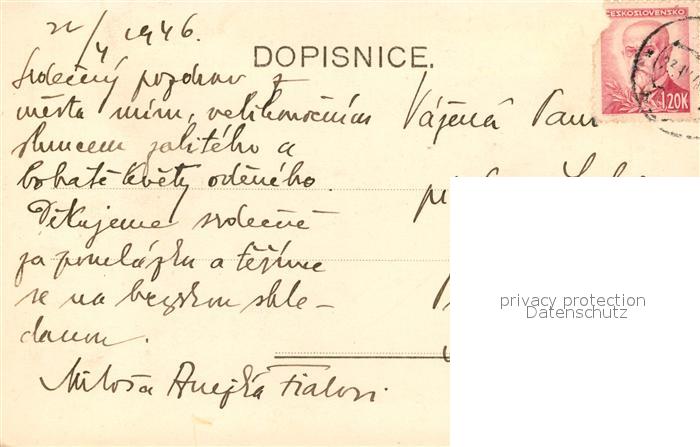 22/4 1946.
DOPISNICE.
ČESKOSLOVENSKO
1.20K
Srdečný pozdrav z
města mim, velikonočním
sluncem zalitého a
bohatě květy oděného.
Děkujeme srdečně
za pomlázku a těšíme
se na brzskou shle-
danou.
Miloša Anežka Fialovi.
Vážená Paní
privacy protection
Datenschutz